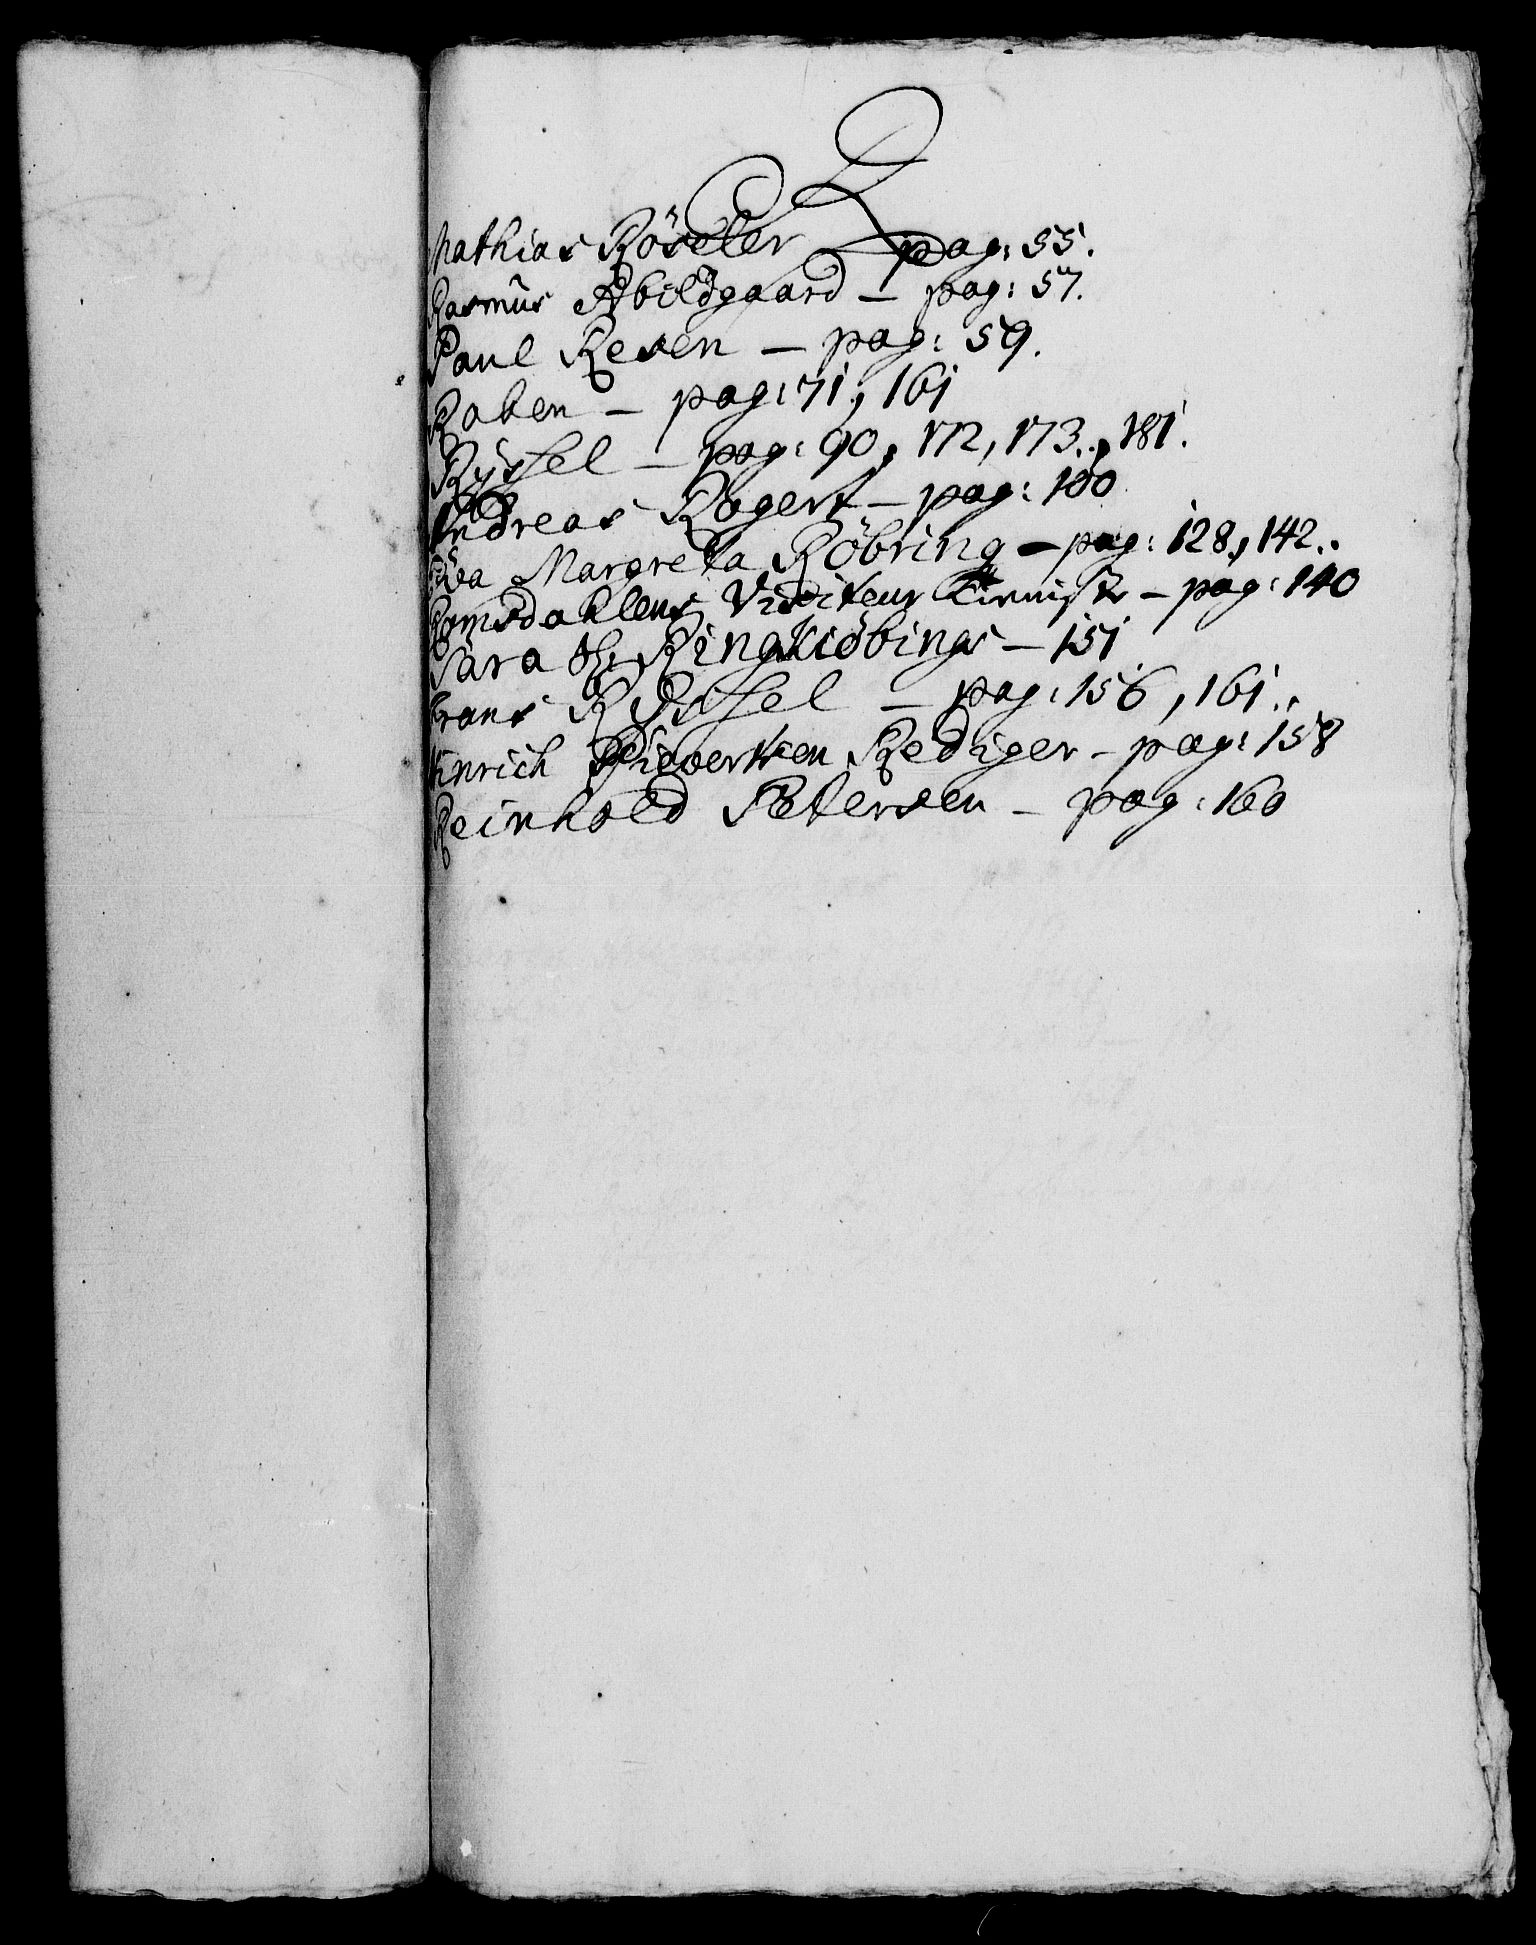 R
Mathias Röseler pag: 55.
Rasmus Abildgaard — pag: 57.
Paul Resen — pag: 59.
Raben — pag: 71, 161
Rÿssel — pag: 90, 172, 173., 181.
Andreas Rogert — pag: 100
Eva Margreta Röbring — pag: 128, 142..
Romsdahlens Visiteur — pag: 140
Sara Ringkiöbings — 151
Frans Rÿssel — pag: 156, 161..
Hinrich Sivertsen Rediger — pag: 158
Reinhold Petersen — pag: 160